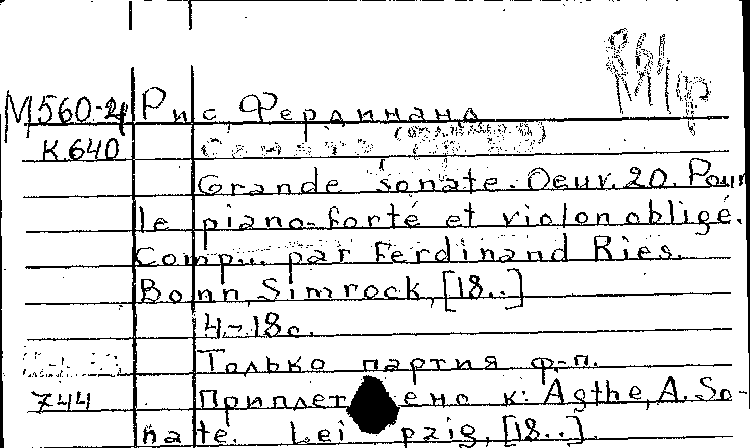 М560-4 Рис, Фердинанд
К.640 Соната
Grande sonate. Oeuv. 20. Pour
le piano-forté et violon obligé.
Comp... par Ferdinand Ries.
Bonn, Simrock, [18..]
4-18с.
Только партия ф-п.
744 Приплетено к: Agthe, A. So-
nate. Leipzig, [18..]